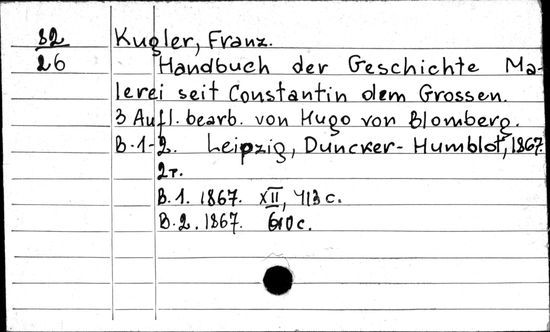 82
26
Kugler, Franz.
Handbuch der Geschichte Ma-
lerei seit Constantin dem Grossen.
3 Aufl. bearb. von Hugo von Blomberg.
B.1-2. Leipzig, Duncker-Humblot, 1867.
2т.
B.1. 1867. XII, 413 c.
B.2. 1867. 610 c.